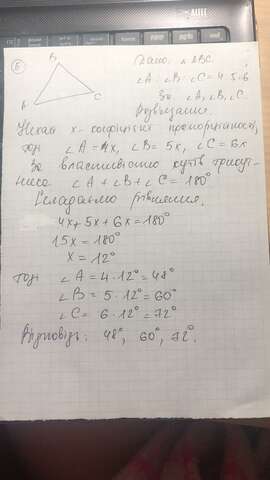 6
B
A
C
Дано: △ ABC
∠A : ∠B : ∠C = 4:5:6
Зн. ∠A, ∠B, ∠C.
Розв'язання.
Нехай x - коефіцієнт пропорційності,
тоді ∠A = 4x, ∠B = 5x, ∠C = 6x
За властивістю кутів трикут-
ника ∠A + ∠B + ∠C = 180°
Складаємо рівняння.
4x + 5x + 6x = 180°
15x = 180°
x = 12°
Тоді ∠A = 4 · 12° = 48°
∠B = 5 · 12° = 60°
∠C = 6 · 12° = 72°
Відповідь: 48°, 60°, 72°.